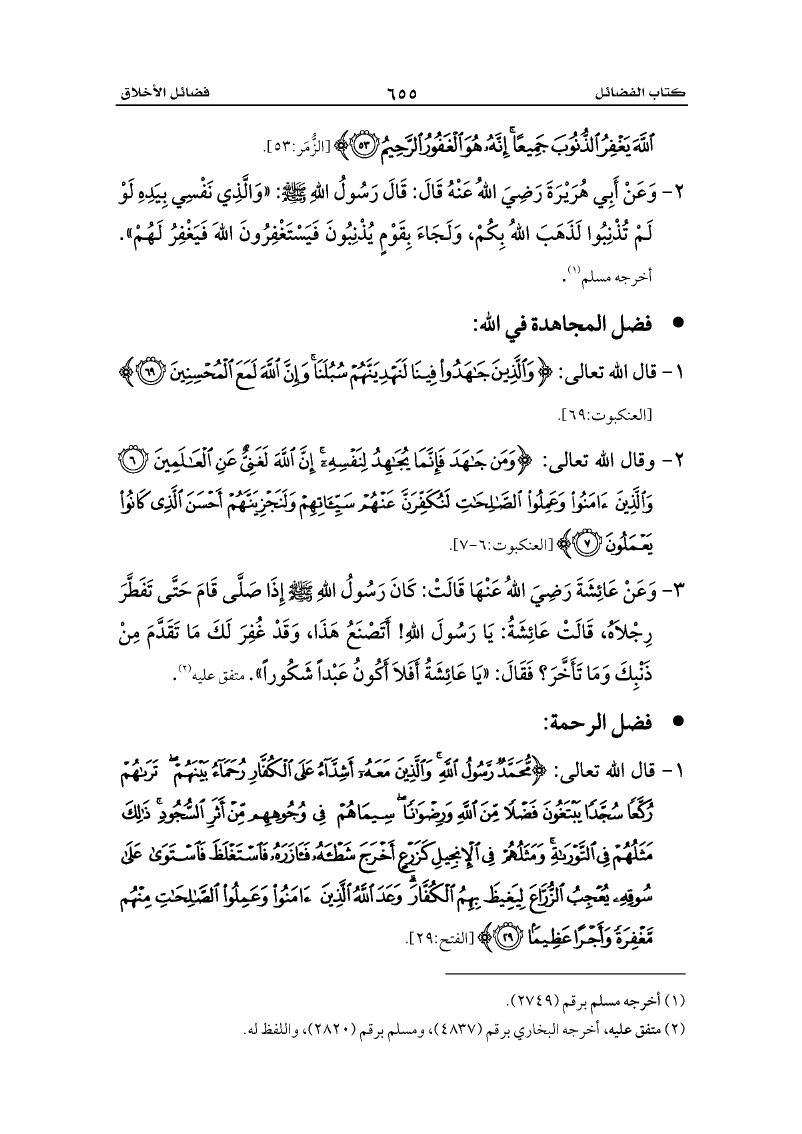 كتاب الفضائل ٦٥٥ فضائل الأخلاق
ٱللَّهَ يَغْفِرُ ٱلذُّنُوبَ جَمِيعًا ۚ إِنَّهُۥ هُوَ ٱلْغَفُورُ ٱلرَّحِيمُ ﴿٥٣﴾ [الزُّمَر:٥٣].
٢- وَعَنْ أَبِي هُرَيْرَةَ رَضِيَ اللهُ عَنْهُ قَالَ: قَالَ رَسُولُ اللهِ ﷺ: «وَالَّذِي نَفْسِي بِيَدِهِ لَوْ
لَمْ تُذْنِبُوا لَذَهَبَ اللهُ بِكُمْ، وَلَجَاءَ بِقَوْمٍ يُذْنِبُونَ فَيَسْتَغْفِرُونَ اللهَ فَيَغْفِرُ لَهُمْ».
أخرجه مسلم(١).
• فضل المجاهدة في الله:
١- قال الله تعالى: ﴿وَٱلَّذِينَ جَٰهَدُوا۟ فِينَا لَنَهْدِيَنَّهُمْ سُبُلَنَا ۚ وَإِنَّ ٱللَّهَ لَمَعَ ٱلْمُحْسِنِينَ ٦٩﴾
[العنكبوت:٦٩].
٢- وقال الله تعالى: ﴿وَمَن جَٰهَدَ فَإِنَّمَا يُجَٰهِدُ لِنَفْسِهِۦٓ ۚ إِنَّ ٱللَّهَ لَغَنِىٌّ عَنِ ٱلْعَٰلَمِينَ ٦
وَٱلَّذِينَ ءَامَنُوا۟ وَعَمِلُوا۟ ٱلصَّٰلِحَٰتِ لَنُكَفِّرَنَّ عَنْهُمْ سَيِّـَٔاتِهِمْ وَلَنَجْزِيَنَّهُمْ أَحْسَنَ ٱلَّذِى كَانُوا۟
يَعْمَلُونَ ٧﴾ [العنكبوت:٦-٧].
٣- وَعَنْ عَائِشَةَ رَضِيَ اللهُ عَنْهَا قَالَتْ: كَانَ رَسُولُ اللهِ ﷺ إِذَا صَلَّى قَامَ حَتَّى تَفَطَّرَ
رِجْلاَهُ، قَالَتْ عَائِشَةُ: يَا رَسُولَ اللهِ! أَتَصْنَعُ هَذَا، وَقَدْ غُفِرَ لَكَ مَا تَقَدَّمَ مِنْ
ذَنْبِكَ وَمَا تَأَخَّرَ؟ فَقَالَ: «يَا عَائِشَةُ أَفَلاَ أَكُونُ عَبْداً شَكُوراً». متفق عليه(٢).
• فضل الرحمة:
١- قال الله تعالى: ﴿مُّحَمَّدٌ رَّسُولُ ٱللَّهِ ۚ وَٱلَّذِينَ مَعَهُۥٓ أَشِدَّآءُ عَلَى ٱلْكُفَّارِ رُحَمَآءُ بَيْنَهُمْ ۖ تَرَىٰهُمْ
رُكَّعًا سُجَّدًا يَبْتَغُونَ فَضْلًا مِّنَ ٱللَّهِ وَرِضْوَٰنًا ۖ سِيمَاهُمْ فِى وُجُوهِهِم مِّنْ أَثَرِ ٱلسُّجُودِ ۚ ذَٰلِكَ
مَثَلُهُمْ فِى ٱلتَّوْرَىٰةِ ۚ وَمَثَلُهُمْ فِى ٱلْإِنجِيلِ كَزَرْعٍ أَخْرَجَ شَطْـَٔهُۥ فَـَٔازَرَهُۥ فَٱسْتَغْلَظَ فَٱسْتَوَىٰ عَلَىٰ
سُوقِهِۦ يُعْجِبُ ٱلزُّرَّاعَ لِيَغِيظَ بِهِمُ ٱلْكُفَّارَ ۗ وَعَدَ ٱللَّهُ ٱلَّذِينَ ءَامَنُوا۟ وَعَمِلُوا۟ ٱلصَّٰلِحَٰتِ مِنْهُم
مَّغْفِرَةً وَأَجْرًا عَظِيمًۢا ٢٩﴾ [الفتح:٢٩].
(١) أخرجه مسلم برقم (٢٧٤٩).
(٢) متفق عليه، أخرجه البخاري برقم (٤٨٣٧)، ومسلم برقم (٢٨٢٠)، واللفظ له.